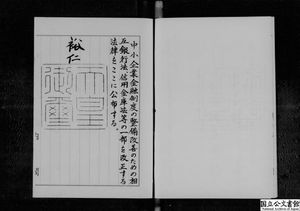 中小企業金融制度の整備改善のための相
互銀行法、信用金庫法等の一部を改正する
法律をここに公布する。
裕仁
天皇
御璽
国立公文書館
National Archives of Japan